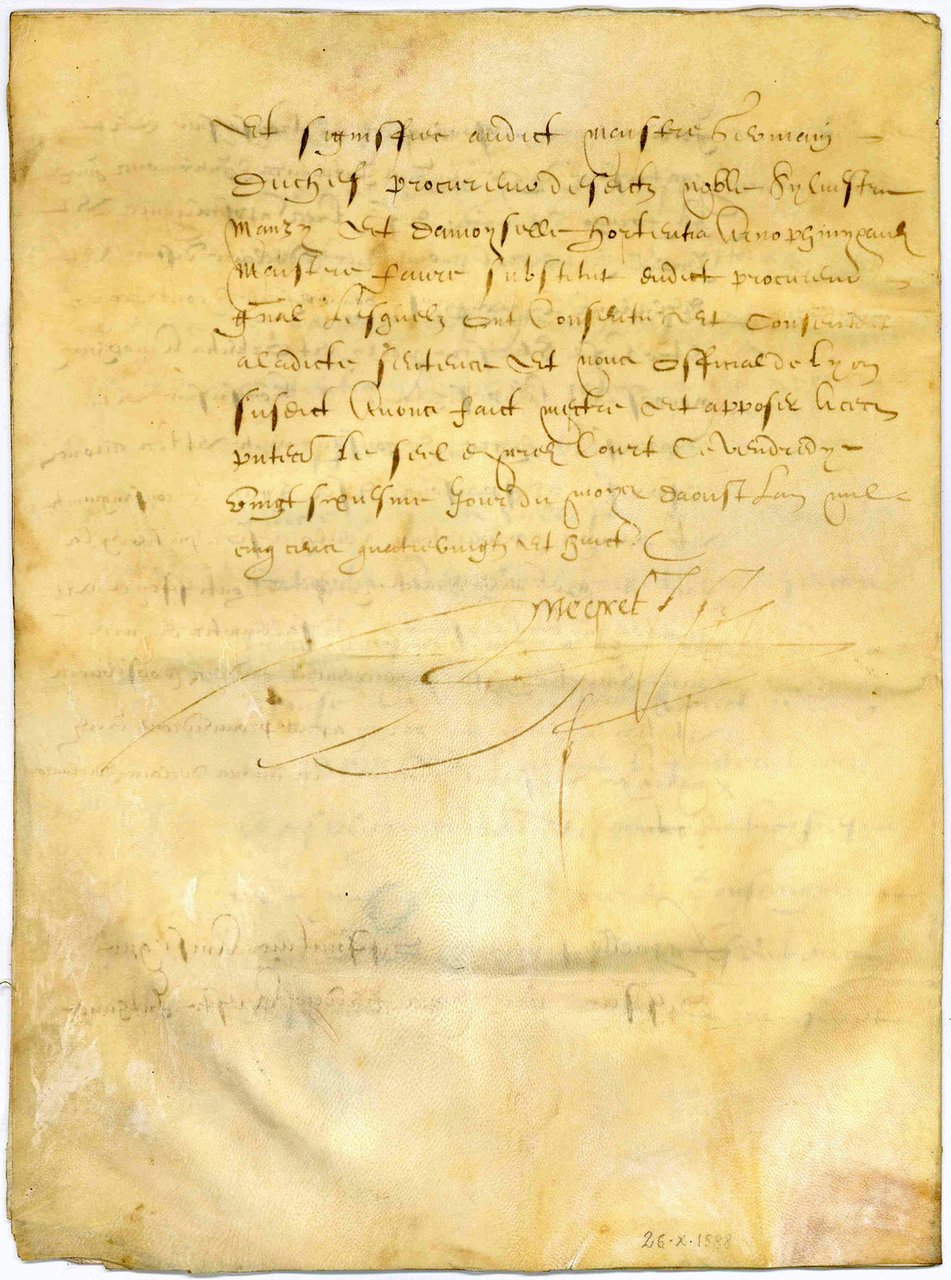 Et signiffiee audict maistre Germain
Duchef procureur desdictz noble Sylvestre
Manzy Et damoyselle Hortentia
Maistre Faure substitut dudict procureur
gnal Lesquelz Ont Consentu Et Consentent
aladicte sentence Et nous Official de Lyon
susdict Avons faict mectre Et apposer Aces
pntes Le seel Court Ce vendredy
vingt sixiesme Jour du moys daoust Lan mil
cinq cens quatrevingtz Et huict.
Megret
26.X.1588